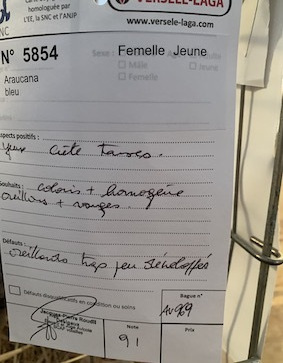 homologuée par
l'EE, la SNC et l'ANJP
NC
VERSELE-LAGA
www.versele-laga.com
N° 5854
Sexe :
Femelle Jeune
Mâle
Jeune
Femelle
Araucana
bleu
Aspects positifs :
yeux crête tarses.
Souhaits : coloris + homogène
oreillons + rouges.
Défauts :
oreillards trop peu développés
Défauts disqualificatifs en condition ou soins
Jacques-Pierre Roudil
Note
91
Bague n°
AV969